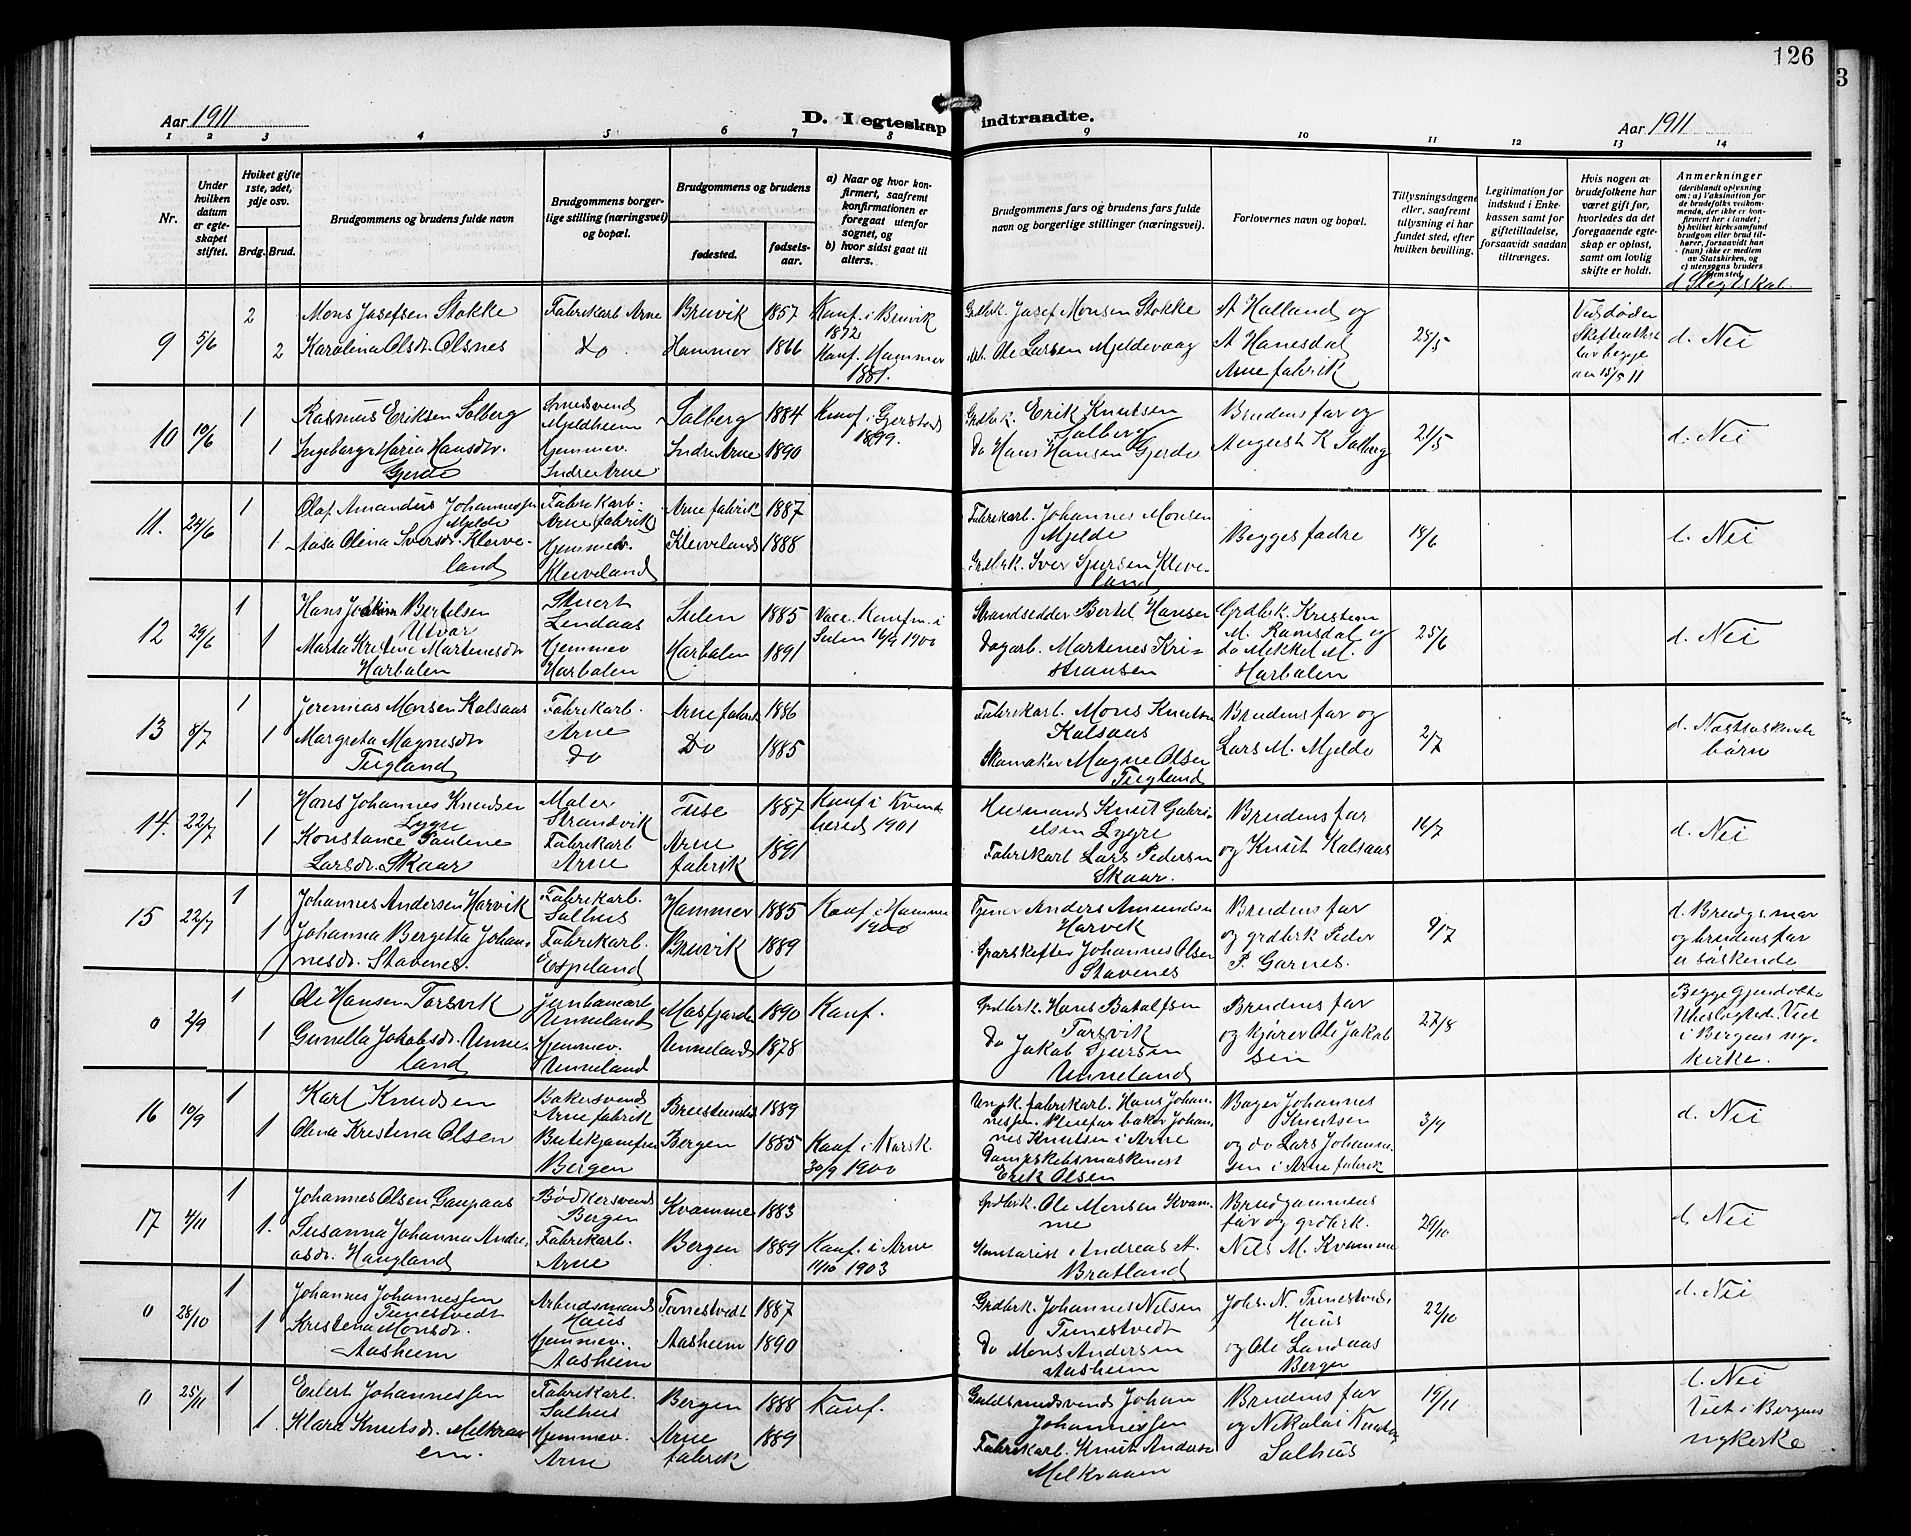 126
3
Aar 1911
D. I egteskap indtraadte.
Aar 1911
1 2 3 4 5 6 7 8 9 10 11 12 13 14
Nr.
Under hvilken datum er egteskapet stiftet.
Hvilket gifte 1ste, 2det, 3dje osv.
Brdg. Brud.
Brudgommens og brudens fulde navn
Brudgommens borgerlige stilling (næringsvei) og bopæl.
Brudgommens og brudens
fødested.
fødselsaar.
a) Naar og hvor konfirmert, saafremt konfirmationen er foregaat utenfor sognet, og
b) hvor sidst gaat til alters.
Brudgommens fars og brudens fars fulde navn og borgerlige stillinger (næringsvei).
Forlovernes navn og bopæl.
Tillysningsdagene eller, saafremt tillysning ei har fundet sted, efter hvilken bevilling.
Legitimation for indskud i Enkekassen samt for giftetilladelse, forsaavidt saadan tiltrænges.
Hvis nogen av brudefolkene har været gift før, hvorledes da det foregaaende egteskap er opløst, samt om lovlig skifte er holdt.
Anmerkninger
d. Slegtskab
9 5/6 2 Mons Josefsen Stokke Fabrikarb Arne Bruvik 1857 Konf. i Bruvik 1872 Grdbrk. Josef Monsen Stokke A Halland og 28/5 d. Nei
2 Karolina Olsdr. Olsnes Do. Hammer 1866 Konf. Hammer 1881. Ole Larsen Mjeldevaag A Hanesdal Arne fabrik
10 10/6 1 Rasmus Eriksen Solberg Smedsvend Mjeldheim Solberg 1884 Konf. i Gjerstad 1899. Grdbrk. Erik Knutsen Solberg Brudens far og 21/5 d. Nei
1 Ingeborg Maria Hansdr. Gjerde Hjemmev. Indre Arne Indre Arne 1890 Do Hans Hansen Gjerde August K Solberg
11. 24/6 1 Olaf Amandus Johannessen Mjelde Fabrikarb. Arne fabrik Arne fabrik 1887 Fabrikarb. Johannes Monsen Mjelde Begges fædre 18/6 d. Nei
1 Aasa Olina Iversdr. Kleveland Hjemmev. Kleveland Kleveland 1888 Grdbrk. Iver Sjursen Kleveland
12 29/6 1 Hans Joakim Bertelsen Utvær Lendaas Sulen 1885 Vacc. Konfm. i Sulen 16/9 1900 Strandsidder Bertel Hansen Grdbrk. Kristen M. Romsdal og 25/6 d. Nei
1 Marta Kristine Martinesdr Harbalen Hjemmev Harbalen Harbalen 1891 Dagarb. Martines Kristiansen do Mikkel M. Harbalen
13 8/7 1 Jeremias Monsen Kalsaas Fabrikarb. Arne Arne fabrik 1886 Fabrikarb. Mons Knutsen Kalsaas Brudens far og 2/7 d. Næstsøskende børn
1 Margreta Magnesdr Tugland Do Do 1885 Skomaker Magne Olsen Tugland Lars M. Mjelde
14. 22/7 1 Hans Johannes Knudsen Lygre Maler Strandvik Fuse 1887 Konf i Kvindhered 1901 Husmand Knut Gabrielsen Lygre Brudens far 16/7 d. Nei
1 Konstance Pauline Larsdr. Skaar Fabrikarb Arne Arne fabrik 1891 Fabrikarb Lars Pedersen Skaar. og Knut Kalsaas
15 22/7 1 Johannes Andersen Horvik Fabrikarb. Salhus Hammer 1885 Konf. i Hammer 1900 Anders Amundsen Horvik Brudens far 9/7 d. Brudg. mor og brudens far er søskende
1 Johanna Bergitta Johannesdr. Stavenes. Fabrikarb. Espeland Bruvik 1889 Johannes Olsen Stavenes og grdbrk Peder P. Garnes.
0 2/9 1 Ole Hansen Torsvik Jernbanearb Unneland Masfjorden 1890 Konf. Grdbrk. Hans Botolfsen Torsvik Brudens far 27/8 Begge gjendøbte Ubeslegted. Viet i Bergens nykirke.
1 Gunilla Jakobsdr. Unneland Hjemmev. Unneland Unneland 1878 Do Jakob Sjursen Unneland og kjører Ole Jakobsen
16 10/9 1 Karl Knudsen Bakersvend Arne fabrik 1889 Ungk. fabrikarb. Hans Johannessen. Pleiefar baker Johannes Knutsen i Arne Bager Johannes Knutsen 3/9 d. Nei
1 Olina Kristina Olsen Bergen Bergen 1885 Konf i Korsk. 30/9 1900 Dampskibsmaskinist Erik Olsen og do Lars Johannesen i Arne fabrik
17 4/11 1 Johannes Olsen Gaupaas Bødkersvend Bergen Kvamme 1883 Grdbrk. Ole Monsen Kvamme Brudgommens far og grdbrk. 29/10 d. Nei
1. Susanna Johanna Andreasdr. Haugland Fabrikarb. Arne Bergen 1889 Konf. i Arne 11/10 1903 Kontorist Andreas A. Bratland Nils M. Kvamme
0 28/10 1 Johannes Johannessen Tunestvedt Arbeidsmand Haus Tunestvedt 1887 Grdbrk. Johannes Nilsen Tunestvedt Johs. N. Tunestvedt Haus 22/10 d. Nei
1 Kristina Monsdr. Aasheim Hjemmev. Aasheim Aasheim 1890 Do Mons Andersen Aasheim og Ole Landaas Bergen
0 25/11 1 Eilert Johannessen Fabrikarb. Salhus Bergen 1888 Konf. Guldsmedsvend Johan Johannessen Brudens far 19/11 d. Nei Viet i Bergens nykirke
1. Klara Knutsdr. Melkraaen. Hjemmev. Arne Arne fabrik 1889 Fabrikarb. Knut Andersen Melkraaen og Nikolai Knutsen Salhus